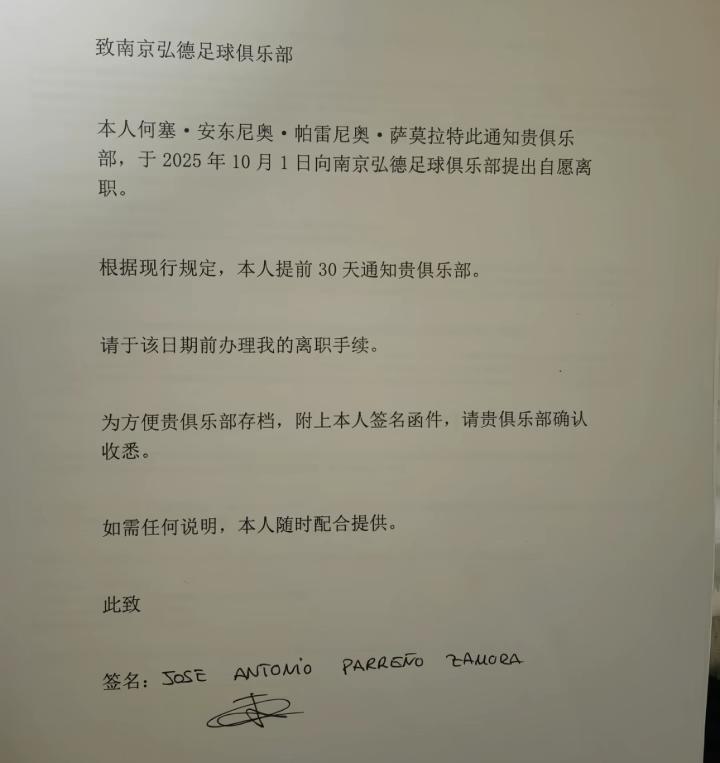 致南京弘德足球俱乐部
本人何塞·安东尼奥·帕雷尼奥·萨莫拉特此通知贵俱乐
部，于 2025 年 10 月 1 日向南京弘德足球俱乐部提出自愿离
职。
根据现行规定，本人提前 30 天通知贵俱乐部。
请于该日期前办理我的离职手续。
为方便贵俱乐部存档，附上本人签名函件，请贵俱乐部确认
收悉。
如需任何说明，本人随时配合提供。
此致
签名：JOSE ANTONIO PARREÑO ZAMORA